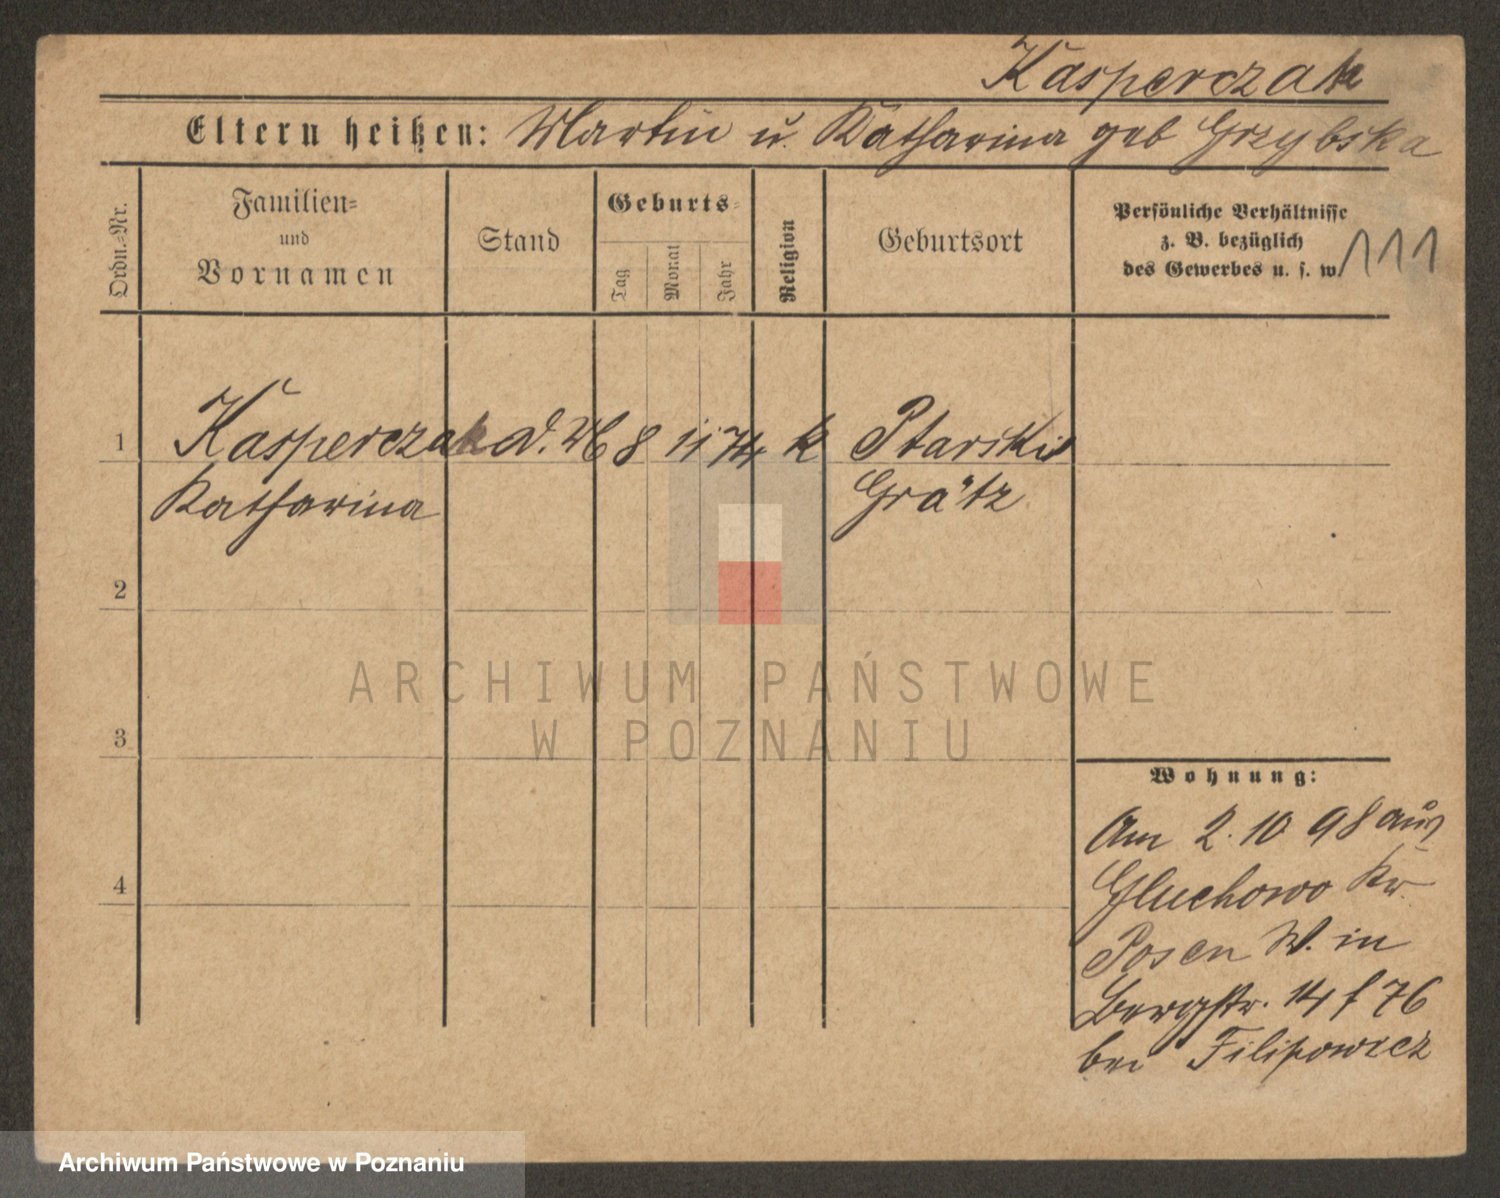 Kasperczak
Eltern heißen: Martin u. Katharina geb Grzybska
Ordn.=Nr.
Familien=
und
Vornamen
Stand
Geburts=
Tag
Monat
Jahr
Religion
Geburtsort
Persönliche Verhältnisse
z. B. bezüglich
des Gewerbes u. s. w.
111
1 Kasperczak d. M 8 11 74 k Ptarski
Katharina Grätz
2
3
4
Wohnung:
Am 2. 10 98 aus
Gluchowo Kr.
Posen W. in
Bergstr. 14 f 76
bei Filipowicz
ARCHIWUM PAŃSTWOWE
W POZNANIU
Archiwum Państwowe w Poznaniu